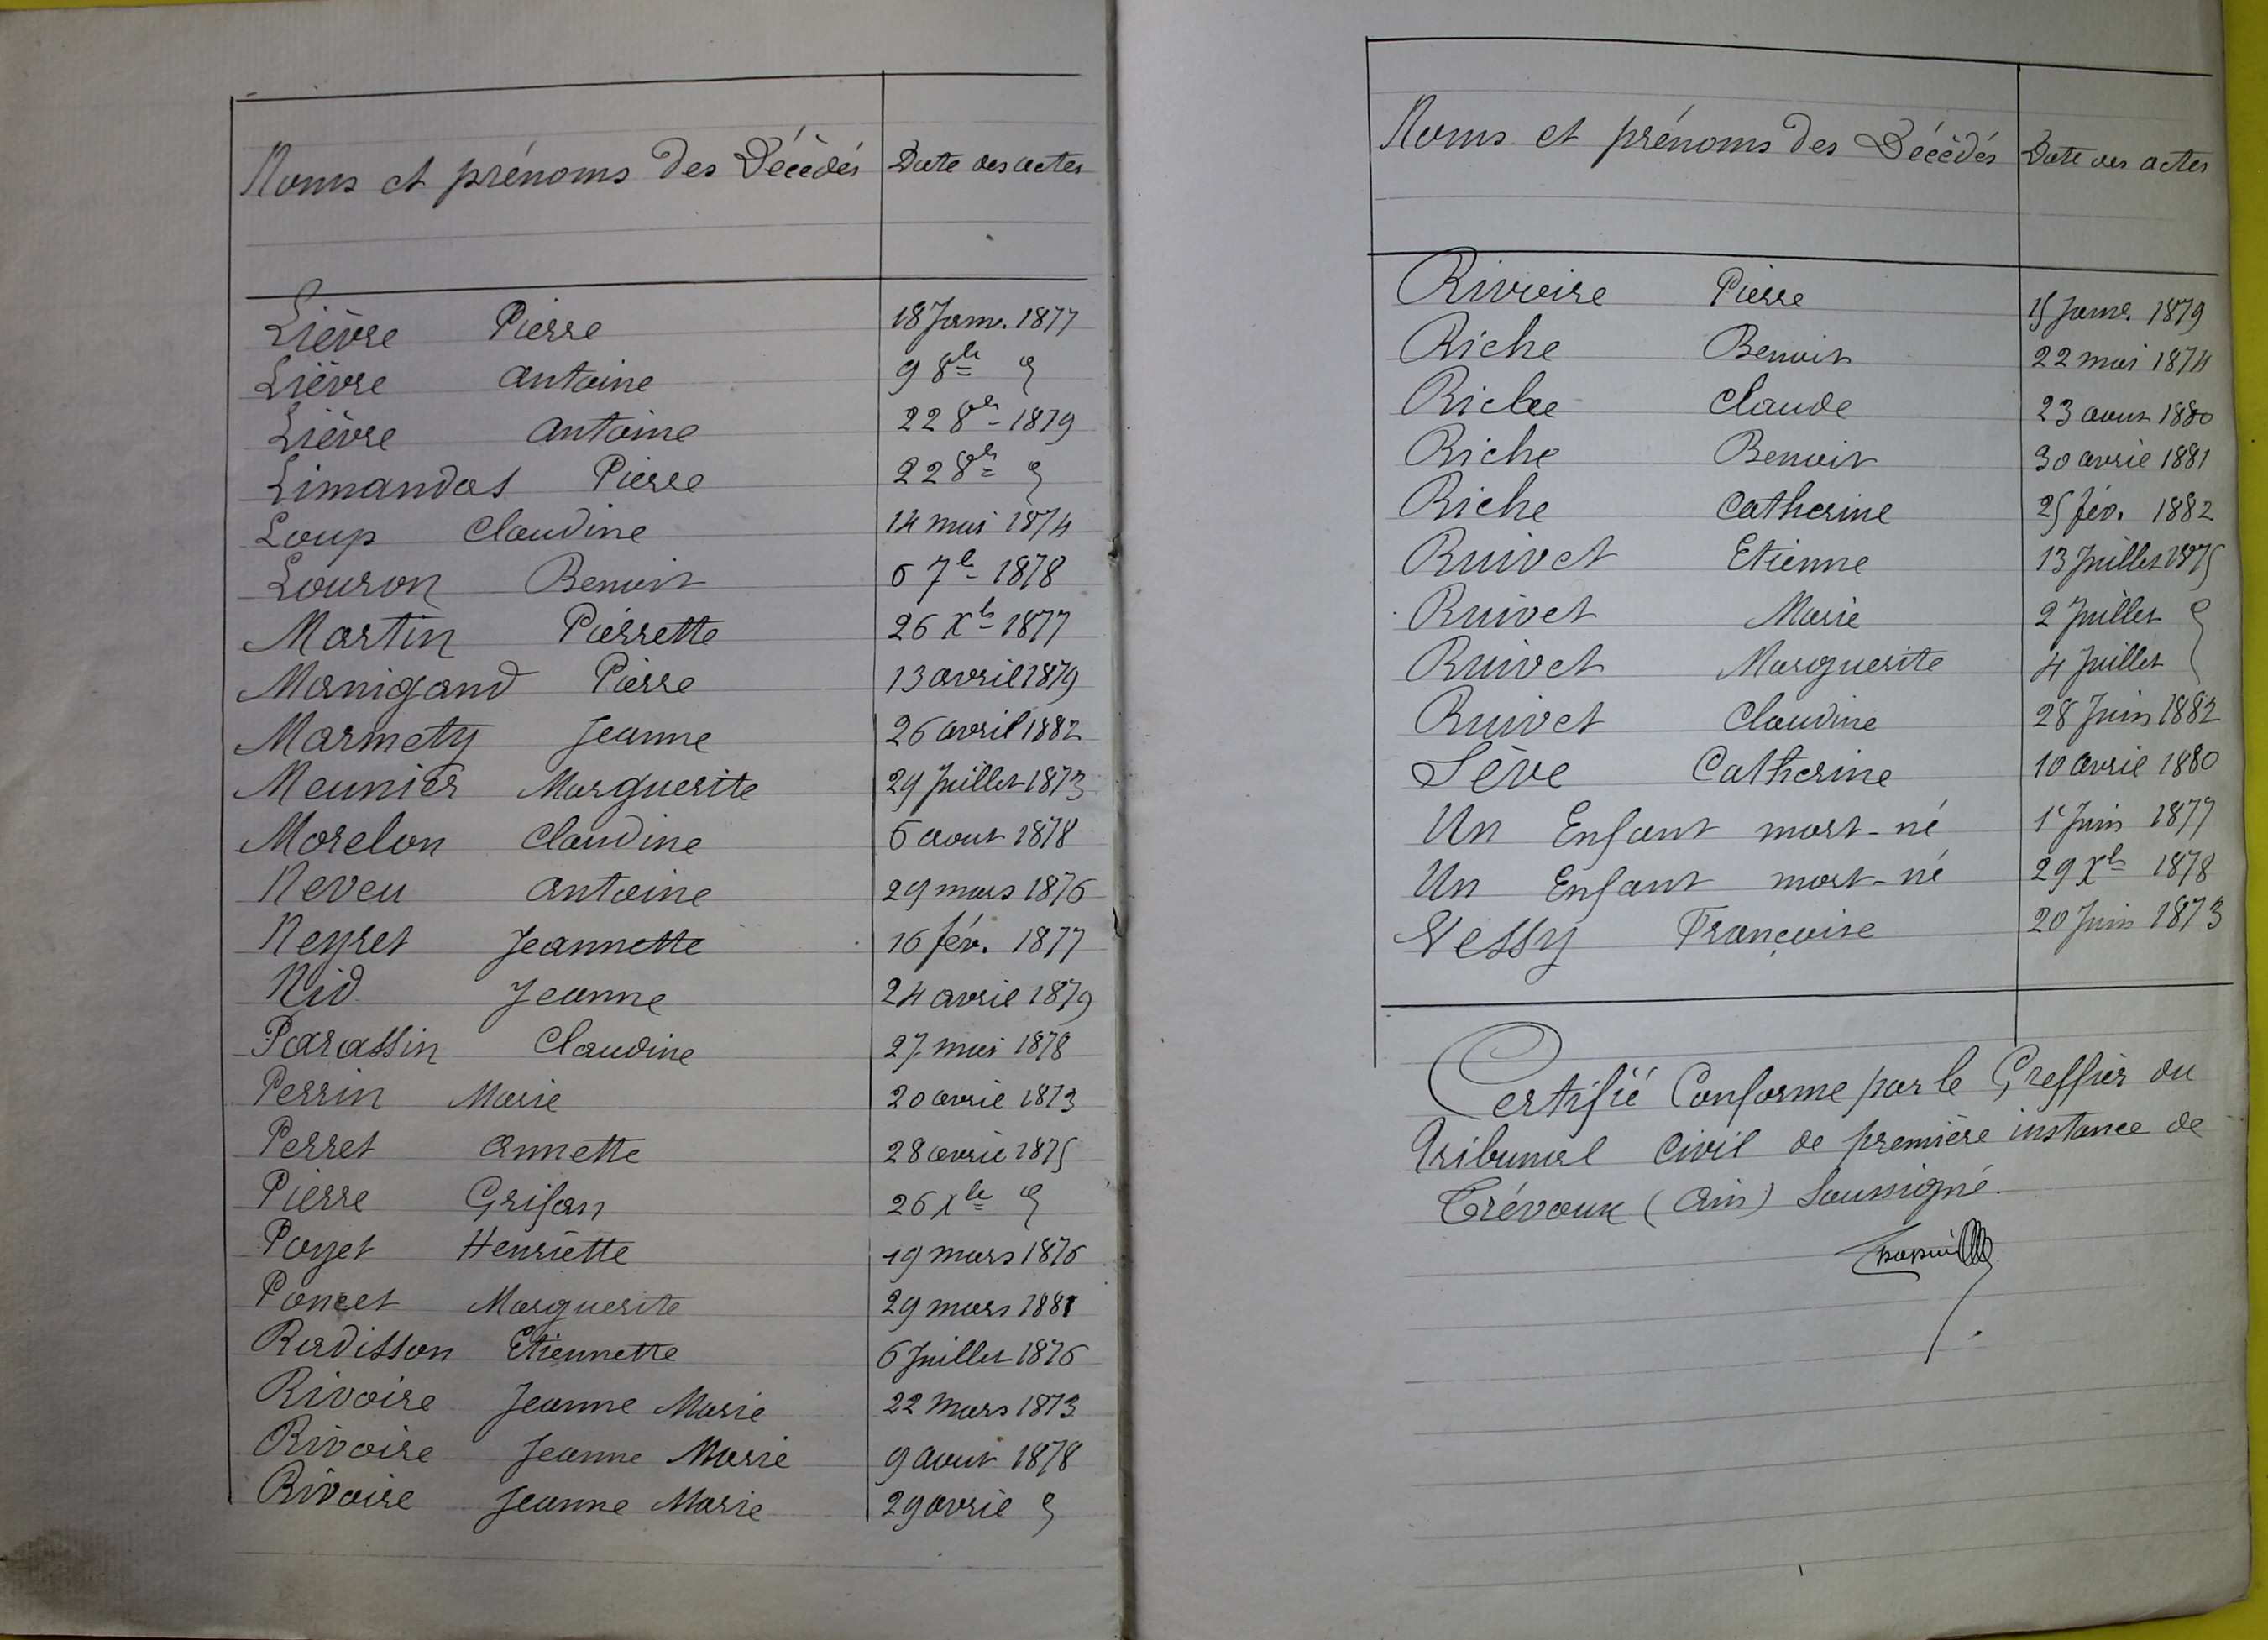 Noms et prénoms des Décédés Date des actes
Lièvre Pierre 18 Janv. 1877
Lièvre Antoine 9 8bre d°
Lièvre Antoine 22 8bre 1879
Limandas Pierre 22 8bre d°
Loup Claudine 14 mai 1874
Louron Benoit 6 7bre 1878
Martin Pierrette 26 Xbre 1877
Manigand Pierre 13 avril 1879
Marmety Jeanne 26 avril 1882
Meunier Marguerite 29 Juillet 1873
Morelon Claudine 6 aout 1878
Neveu Antoine 29 mars 1876
Neyret Jeannette 16 fév. 1877
Nid Jeanne 24 avril 1879
Parassin Claudine 27 mai 1878
Perrin Marie 20 avril 1873
Perret Annette 28 avril 1875
Pierre Grifan 26 Xbre d°
Payet Henriette 19 mars 1876
Poncet Marguerite 29 mars 1881
Radisson Etiennette 6 Juillet 1876
Rivoire Jeanne Marie 22 Mars 1873
Rivoire Jeanne Marie 9 Aout 1878
Rivoire Jeanne Marie 29 avril d°
Noms et prénoms des Décédés Date des actes
Rivoire Pierre 15 Janv. 1879
Riche Benoit 22 mai 1874
Riche Claude 23 aout 1880
Riche Benoit 30 avril 1881
Riche Catherine 25 fév. 1882
Ruivet Etienne 13 Juillet 1875
Ruivet Marie 2 Juillet d°
Ruivet Marguerite 4 Juillet
Ruivet Claudine 28 Juin 1882
Sève Catherine 10 avril 1880
Un Enfant mort-né 1er Juin 1877
Un Enfant mort-né 29 Xbre 1878
Vessy Françoise 20 Juin 1873
Certifié Conforme par le Greffier du
Tribunal Civil de première instance de
Trévoux (Ain) Soussigné.